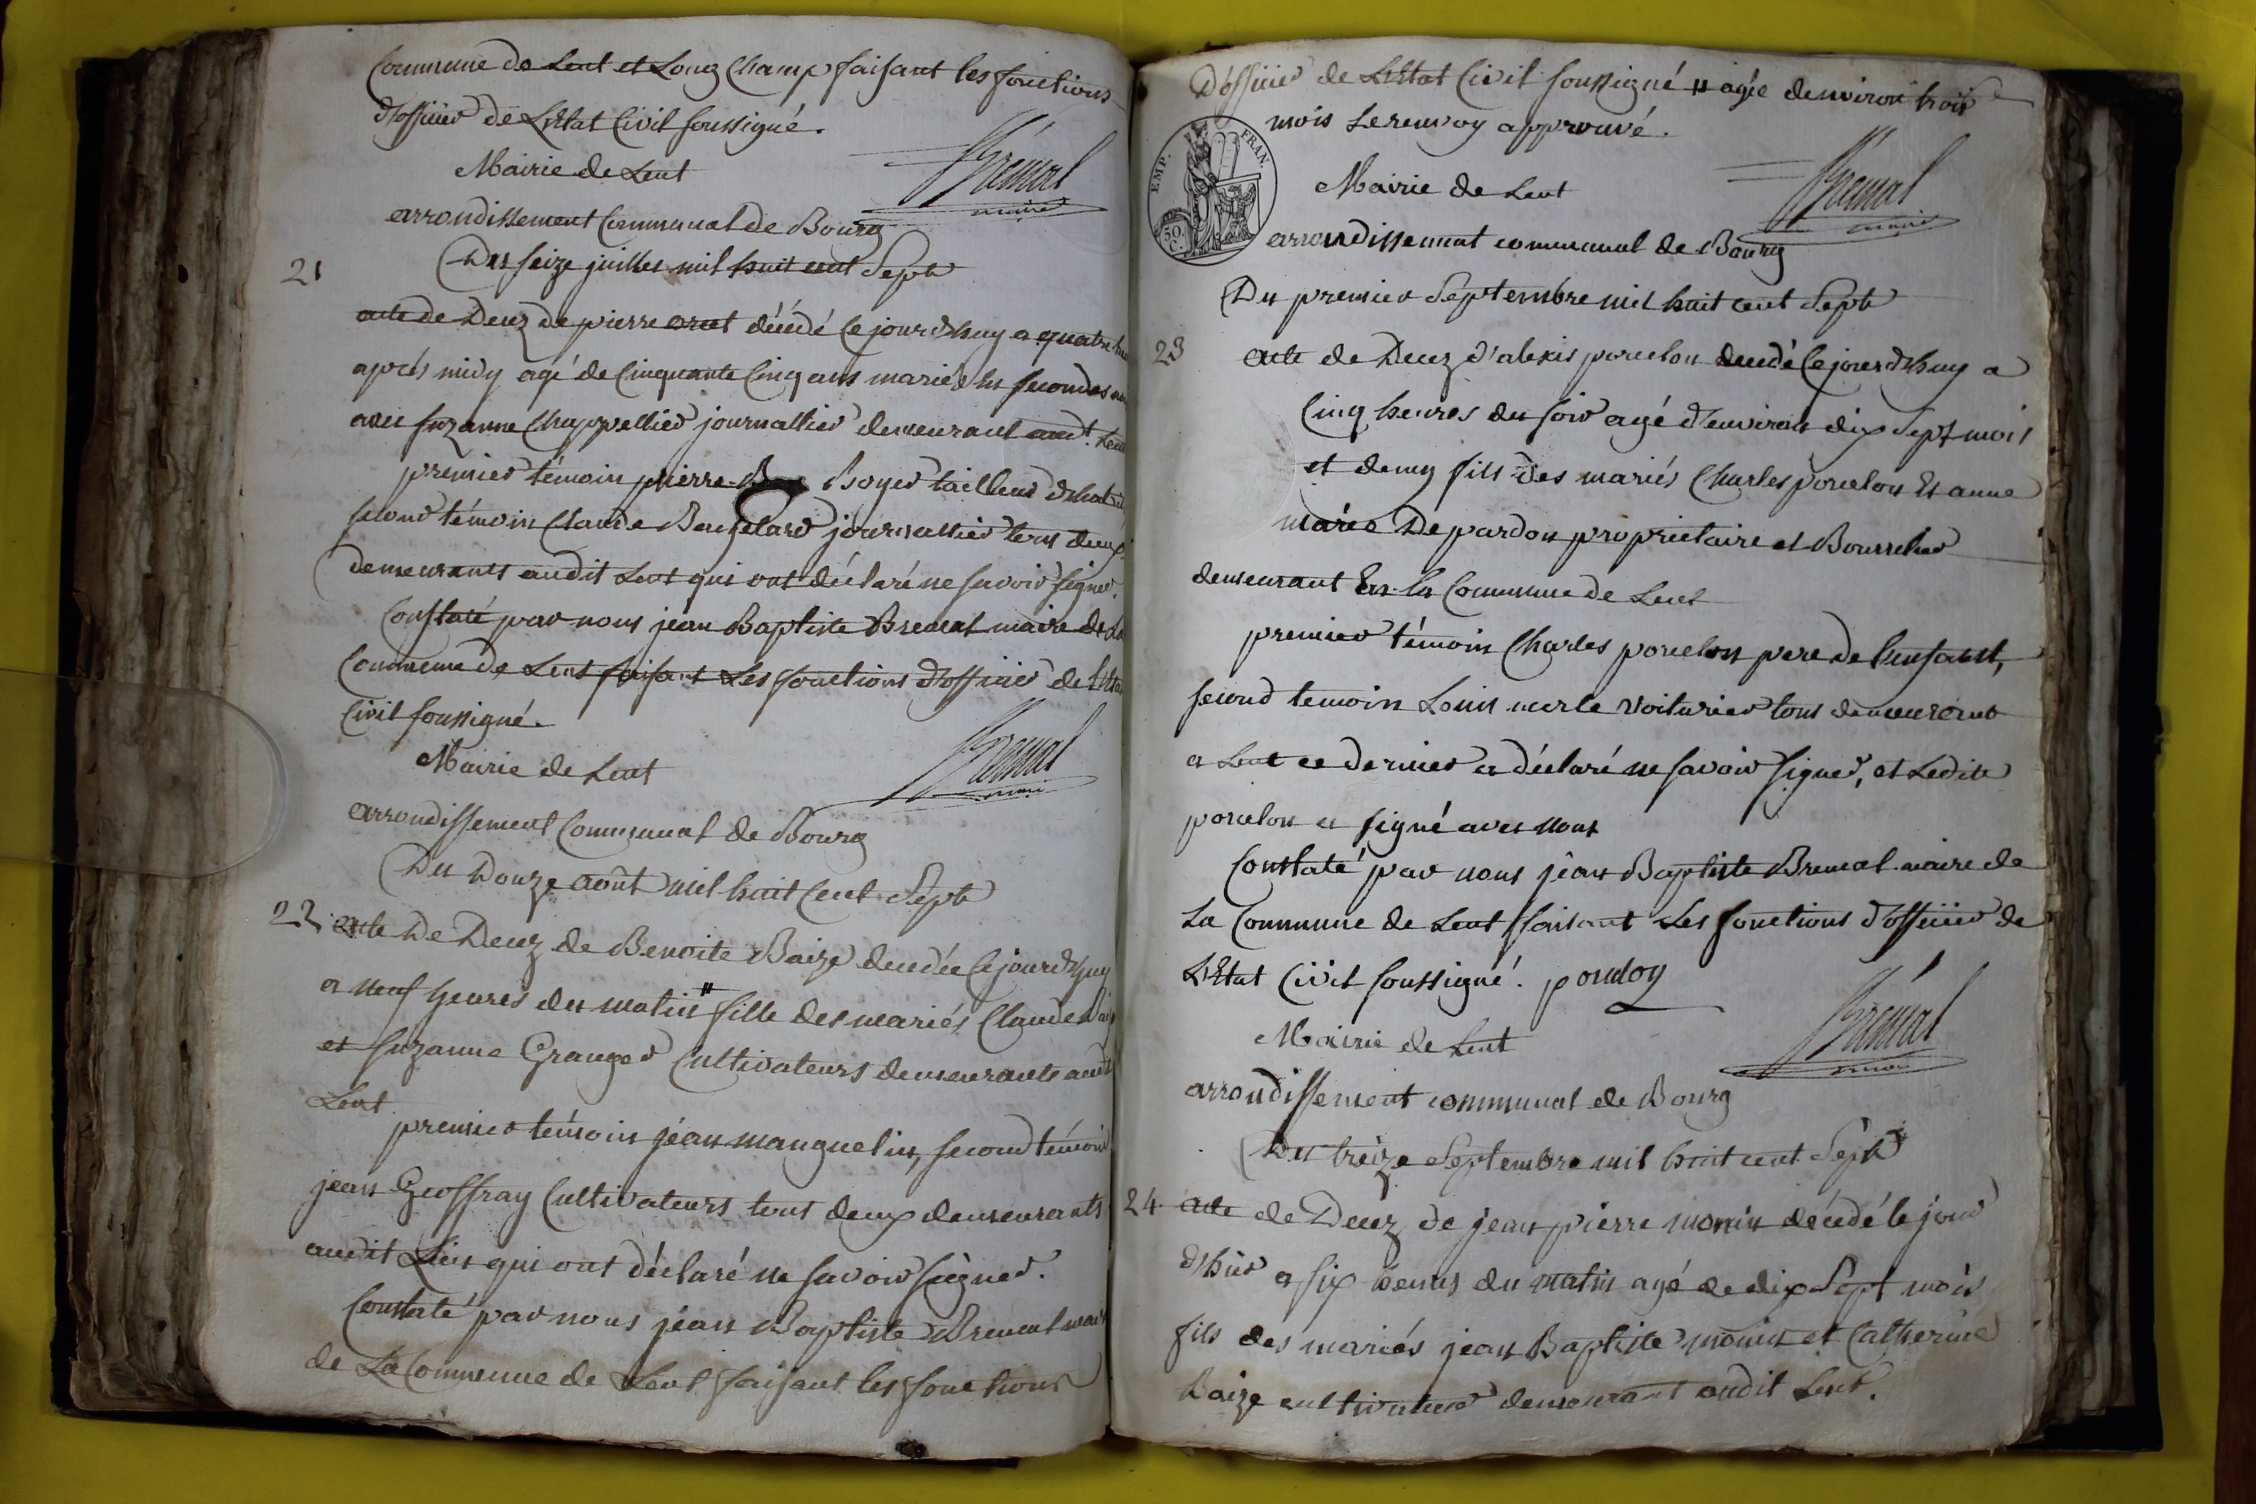 Commune de Lent et Long Champ faisant les fonctions
d'officier de L'Etat Civil soussigné.
Bremal
maire
Mairie de Lent
arrondissement Communal de Bourg
Du seize juillet mil huit cent Sept
21
acte de Decez de pierre décédé Cejourd'huy a quatre
après midy agé de Cinquante Cinq ans marié En secondes
avec suzanne Chappellier journallier demeurant aud.t Lent
premier témoin pierre Boyer tailleur
second témoin Claude journallier tous deux
demeurants audit Lent qui ont déclaré ne savoir signer.
Constaté par nous jean Baptiste Bremal maire de La
Commune de Lent faisant Les fonctions d'officier de L'Etat
Civil soussigné.
Bremal
maire
Mairie de Lent
arrondissement Communal de Bourg
Du Douze aoüt mil huit Cent Sept
22 acte De Decez de Benoite Baize decedée Cejourd'huy
a neuf heures du matin " fille des mariés Claude
et suzanne Granger Cultivateurs demeurants audit
Lent
premier témoin jean manguelin, second témoin
jean Geoffray Cultivateurs tous deux demeurants
audit Lieu qui ont déclaré ne savoir signer.
Constaté par nous jean Baptiste Bremal maire
de La Commune de Lent faisant les fonctions
D'officier de L'Etat Civil soussigné " agée denviron trois
mois Le renvoy approuvé.
EMP. FRAN.
50. C.
Bremal
maire
Mairie de Lent
arrondissement communal de Bourg
Du premier Septembre mil huit cent Sept
23 acte de Decez d'alexis porcelon decedé Cejourd'huy a
Cinq heures du soir agé d'environ dix Sept mois
et demy fils des mariés Charles porcelon Et anne
marie Depardon proprietaire et Bourrelier
demeurant En la Commune de Lent
premier témoin Charles porcelon pere de lenfant,
second temoin Louis merle voiturier tous demeurant
a Lent ce dernier a déclaré ne savoir signer, et Ledit
porcelon a signé avec nous
Constaté par nous jean Baptiste Bremal maire de
La Commune de Lent faisant Les fonctions d'officier de
L'Etat Civil soussigné.
Bremal
maire
Mairie de Lent
arrondissement communal de Bourg
Du treize Septembre mil huit cent Sept
24 acte de Decez de jean pierre monin décédé le jour
d'hier a six heures du matin agé de dix Sept mois
fils des mariés jean Baptiste monin et Catherine
Baize cultivateur demeurant audit Lent.